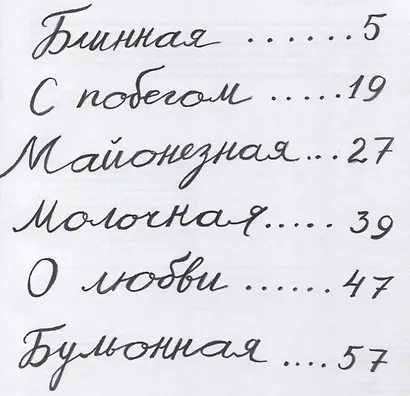 Блинная ...... 5
С побегом ..... 19
Майонезная... 27
Молочная..... 39
О любви ...... 47
Бульонная .... 57